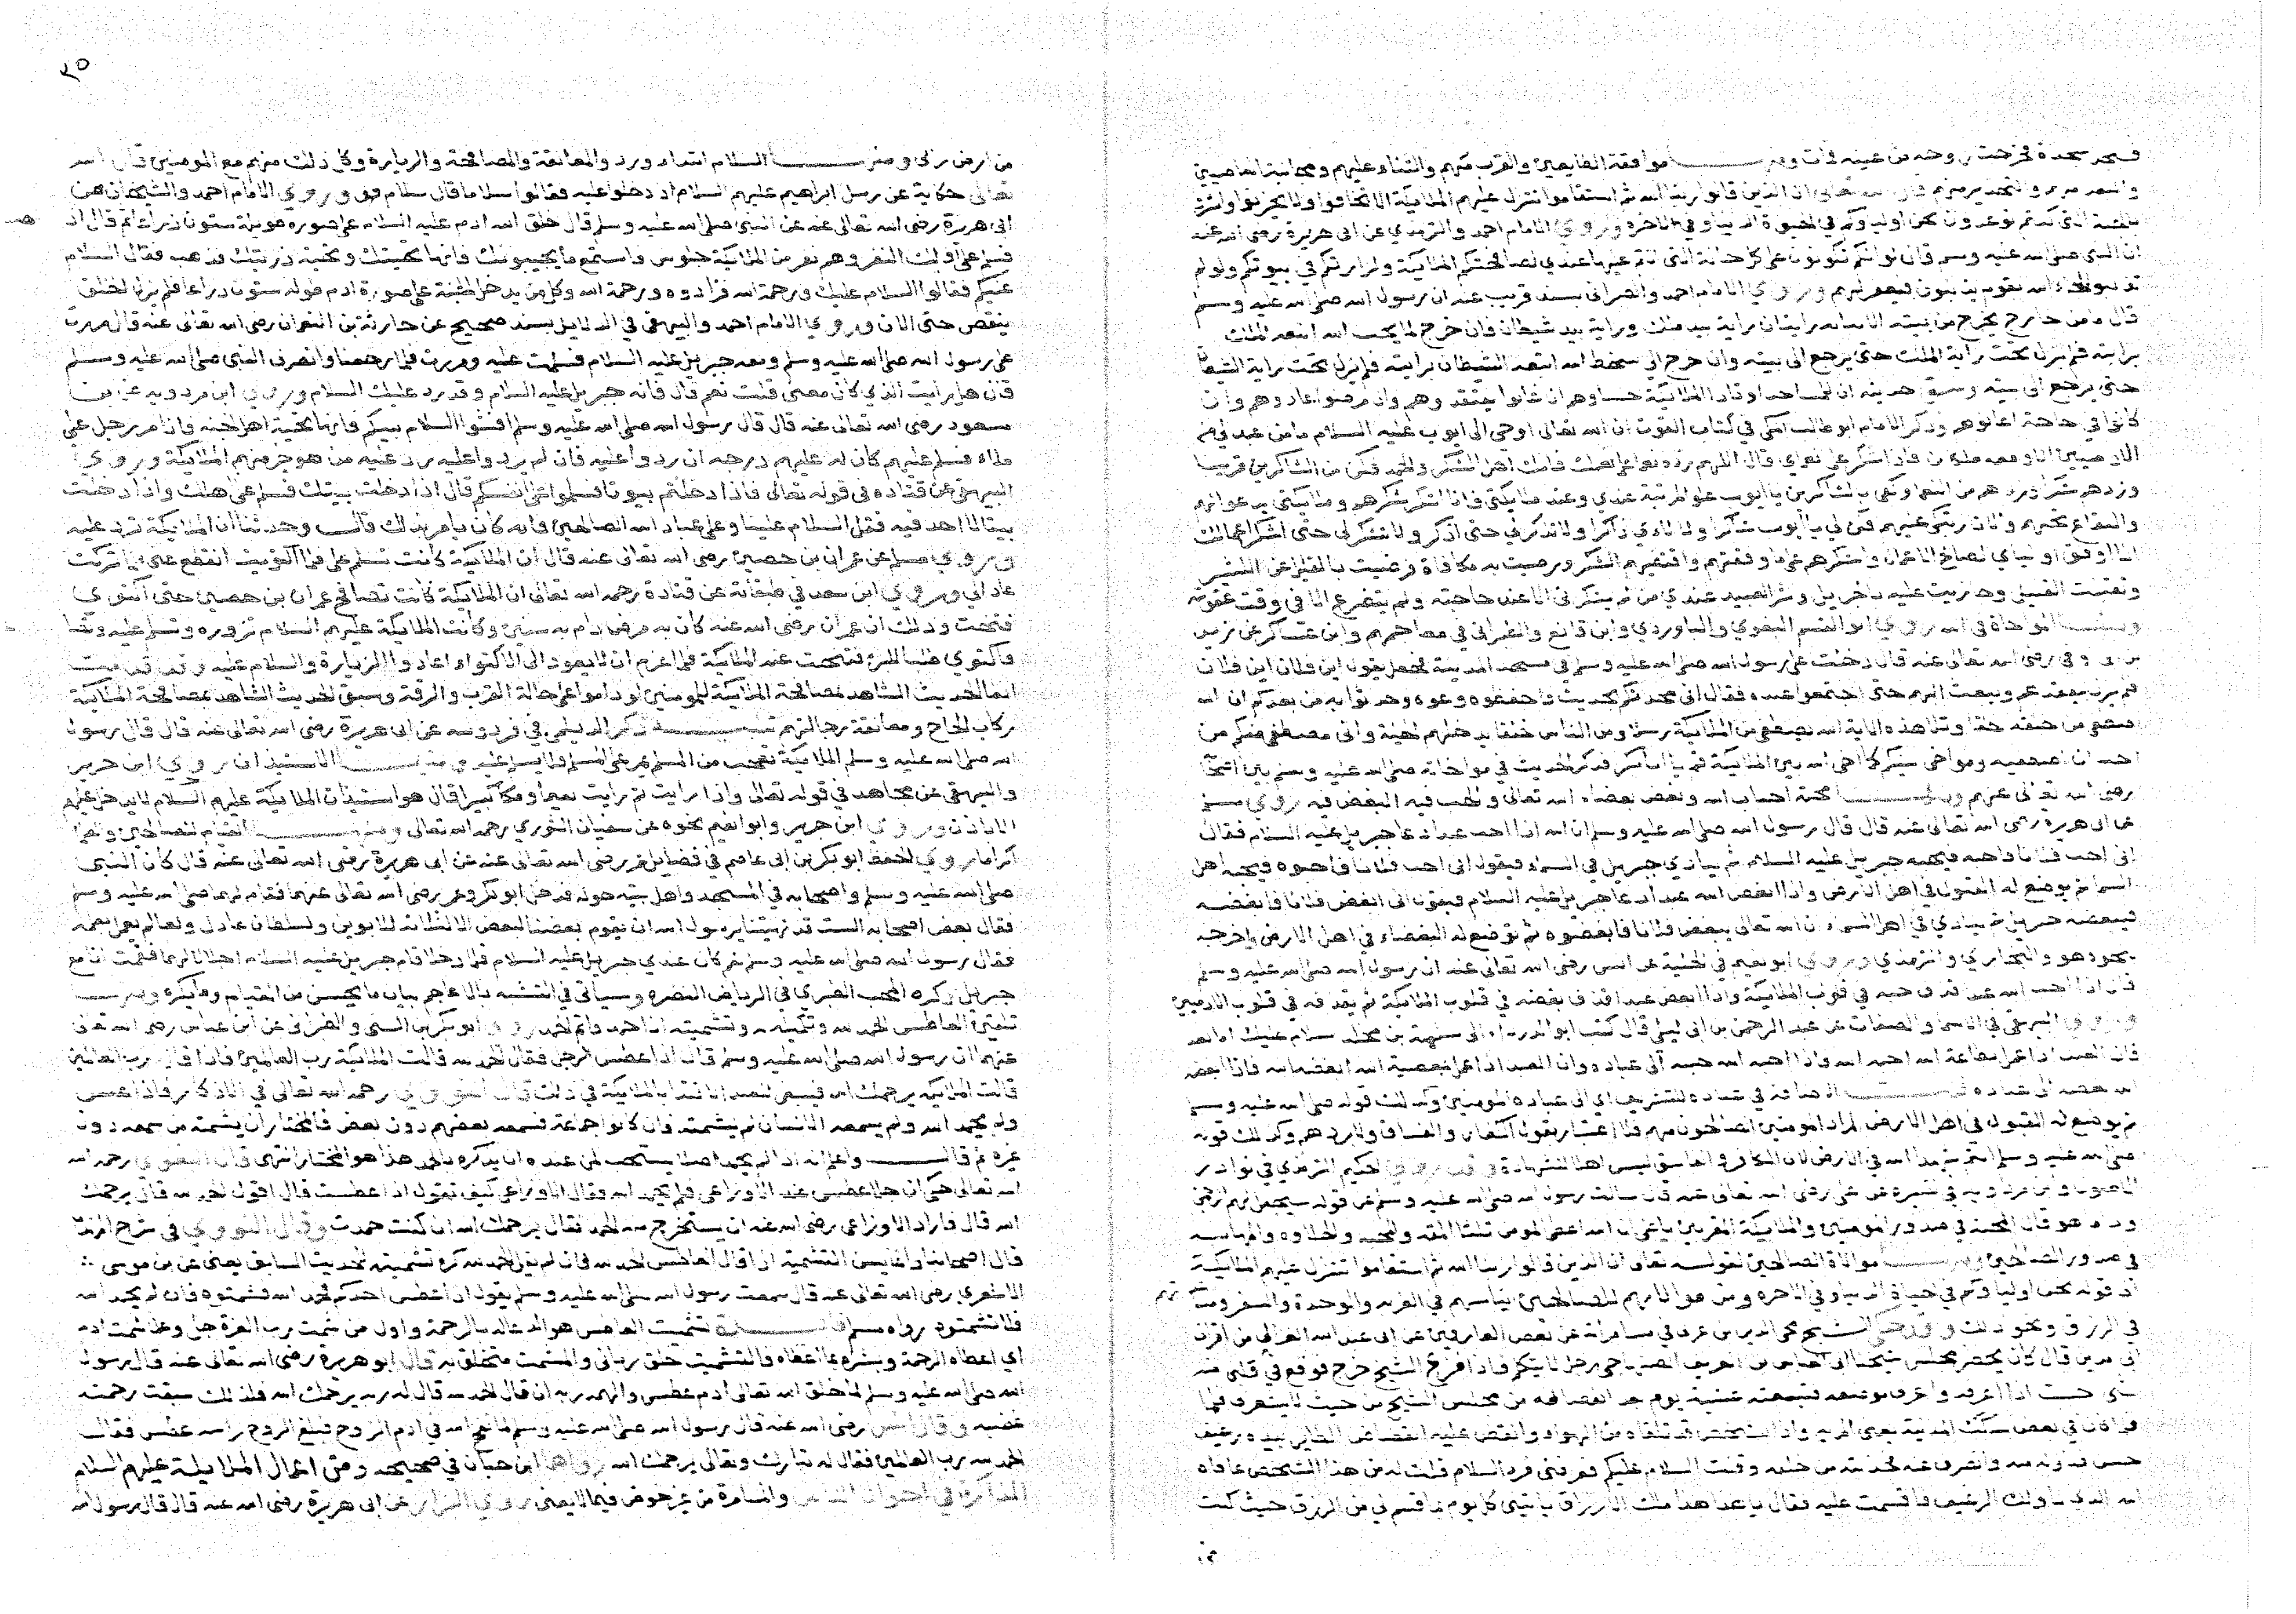 فسجد سجدة فخرجت روحه من عينه فمات ومنها موافقة الطايعين والقرب منهم والثناء عليهم ومجانبة العاصيين
ان الذين قالوا ربنا الله ثم استقاموا تتنزل عليهم الملايكة الا تخافوا ولا تحزنوا وابشروا
بالجنة التي كنتم توعدون نحن اولياوكم في الحيوة الدنيا وفي الاخرة وروي الامام احمد والترمذي عن ابي هريرة رضي الله عنه
ان النبي صلى الله عليه وسلم قال لو انكم تكونون على كل حال على الحالة التي انتم عليها عندي لصافحتكم الملايكة ولزارتكم في بيوتكم ولو لم
تذنبوا لجاء الله بقوم يذنبون ليغفر لهم وروي الامام احمد والطبراني بسند قريب عنه ان رسول الله صلى الله عليه وسلم
قال ما من خارج يخرج من بيته الا ببابه رايتان راية بيد ملك وراية بيد شيطان فان خرج لما يحب الله اتبعه الملك
برايته فلم يزل تحت راية الملك حتى يرجع الى بيته وان خرج الى سخط الله اتبعه الشيطان برايته فلم يزل تحت راية الشيطان
حتى يرجع الى بيته وسبق حديث ان للمساجد اوتادا الملايكة جلساوهم ان غابوا يفتقدوهم وان مرضوا عادوهم وان
كانوا في حاجة اعانوهم وذكر الامام ابو طالب المكي في كتاب القوت ان الله تعالى اوحى الى ايوب عليه السلام ما من عبد لي من
الادميين الا ومعه ملكان فاذا شكرني على نعماي قال اللهم زده نعما على نعم فانك اهل الشكر والحمد فكن من الشاكرين قريبا
وزدهم شكرا وزدهم من النعما وكفى بالشاكرين يا ايوب علو الرتبة عندي وعند ملايكتي فانا اشكر شكرهم وملايكتي يدعوا لهم
والبقاع تحبهم والاثار تبكي عليهم فكن لي يا ايوب شاكرا ولالائي ذاكرا ولا تذكرني حتى اذكرك ولا تشكرني حتى اشكر اعمالك
انا اوفق اوليائي لصالح الاعمال واشكرهم على ما وفقتهم واقتضيهم الشكر ورضيت به مكافاة فرضيت بالقليل عن الكثير
وتقبلت القليل وجازيت عليه بالجزيل وشر العبيد عندي من لم يشكرني الا عند حاجته ولم يتضرع الا في وقت عقوبته
ومنها المواخاة في الله روي ابو القسم البغوي والباوردي وابن قانع والطبراني في معاجمهم وابن عساكر عن زيد
بن ابي اوفى رضي الله تعالى عنه قال دخلت على رسول الله صلى الله عليه وسلم في مسجد المدينة فجعل يقول اين فلان اين فلان
فلم يزل يتفقدهم ويبعث اليهم حتى اجتمعوا عنده فقال اني محدثكم بحديث فاحفظوه وعوه وحدثوا به من بعدكم ان الله
اصطفى من خلقه خلقا وتلا هذه الاية الله يصطفي من الملايكة رسلا ومن الناس خلقا يدخلهم الجنة واني مصطفي منكم من
احب ان اصطفيه ومواخي بينكم كما اخى الله بين الملايكة
رضي الله تعالى عنهم ومنها محبة احباب الله وبغض بغضاء الله تعالى والحب فيه والبغض فيه روي مسلم
عن ابي هريرة رضي الله تعالى عنه قال قال رسول الله صلى الله عليه وسلم ان الله اذا احب عبدا دعا جبريل عليه السلام فقال
اني احب فلانا فاحبه فيحبه جبريل عليه السلام ثم ينادي جبريل في السماء فيقول ان الله يحب فلانا فاحبوه فيحبه اهل
السماء ثم يوضع له القبول في اهل الارض واذا ابغض الله عبدا دعا جبريل عليه السلام فيقول اني ابغض فلانا فابغضه
فيبغضه جبريل ثم ينادي في اهل السماء ان الله تعالى يبغض فلانا فابغضوه ثم توضع له البغضاء في اهل الارض واخرجه
بنحوه هو والبخاري والترمذي وروي ابو نعيم في الحلية عن انس رضي الله تعالى عنه ان رسول الله صلى الله عليه وسلم
قال اذا احب الله عبدا قذف حبه في قلوب الملايكة واذا ابغض عبدا قذف بغضه في قلوب الملايكة ثم يقذفه في قلوب الادميين
وروي البيهقي في الاسما والصفات عن عبد الرحمن بن ابي ليلى قال كتب ابو الدرداء الى مسلمة بن مخلد سلام عليك اما بعد
فان العبد اذا عمل بطاعة الله احبه الله واذا احبه الله حببه الى عباده وان العبد اذا عمل بمعصية الله ابغضه الله فاذا ابغضه
الله بغضه الى عباده الاضافة في عباده للتشريف اي الى عباده المومنين وكذلك قوله صلى الله عليه وسلم
ثم يوضع له القبول في اهل الارض المراد المومنين الصالحون منهم فلا اعتبار بقول الكفار والفساق ولا بردهم وكذلك قوله
صلى الله عليه وسلم انتم شهداء الله في الارض لان الكافر والفاسق ليس اهلا للشهادة وروي الحكيم الترمذي في نوادر
الاصول وابن مردويه في تفسيره عن علي رضي الله تعالى عنه قال سالت رسول الله صلى الله عليه وسلم عن قوله سيجعل لهم الرحمن
ودا ما هو قال المحبة في صدور المومنين والملايكة المقربين يا علي ان الله اعطى المومن ثلاثا المقة والمحبة والحلاوة والمهابة
في صدور الصالحين ومنها موالاة الصالحين لقوله تعالى ان الذين قالوا ربنا الله ثم استقاموا تتنزل عليهم الملايكة
الى قوله نحن اولياوكم في حياة الدنيا وفي الاخرة ومن موالاتهم للصالحين ايناسهم في الغربة والوحدة والسفر
في الرزق ونحو ذلك الشيخ محي الدين بن عربي في مسامراته عن بعض العارفين عن ابي عبد الله الغزالي من اقران
ابي مدين قال كان يحضر مجلس شيخنا ابي العباس بن العريف الصنهاجي رجل لا يتكلم فاذا فرغ الشيخ خرج فوقع في قلبي منه
شي حيث اذا اعرفه واعرف موضعه فتبعته عشية يوم بعد انفصاله من مجلس الشيخ من حيث لا يشعر فلما
كان في بعض سكك المدينة واذا بشخص قد تلقاه من الهواء وانقض عليه انقضاض الطاير بيده رغيف
حسن فناوله له وانصرف عنه فجذبته من خلفه وقلت السلام عليكم فعرفني فرد السلام فقلت له من هذا الشخص عافاك
الله الذي ناولك الرغيف فاقسمت عليه فقال يا هذا هذا ملك الارزاق ياتيني كل يوم بما قسم لي من الرزق حيث كنت
٢٥
من ارض ربي ومنها السلام ابتداء وردا والمعانقة والمصافحة والزيارة وكان ذلك منهم مع المومنين قال الله
تعالى حكاية عن رسل ابراهيم عليهم السلام اذ دخلوا عليه فقالوا سلاما قال سلام قوم وروي الامام احمد والشيخان عن
ابي هريرة رضي الله تعالى عنه عن النبي صلى الله عليه وسلم قال خلق الله ادم عليه السلام على صورته طوله ستون ذراعا ثم قال اذهب
فسلم على اوليك النفر وهم نفر من الملايكة جلوس واستمع ما يحيونك فانها تحيتك وتحية ذريتك فذهب فقال السلام
عليكم فقالوا السلام عليك ورحمة الله فزادوه ورحمة الله وكل من يدخل الجنة على صورة ادم طوله ستون ذراعا فلم يزل الخلق
ينقص حتى الان وروي الامام احمد والبيهقي في الدلايل بسند صحيح عن حارثة بن النعمان رضي الله تعالى عنه قال مررت
على رسول الله صلى الله عليه وسلم ومعه جبريل عليه السلام فسلمت عليه ومررت فلما رجعنا وانصرف النبي صلى الله عليه وسلم
قال هل رايت الذي كان معي قلت نعم قال فانه جبريل عليه السلام وقد رد عليك السلام وروي ابن مردويه عن ابن
مسعود رضي الله تعالى عنه قال قال رسول الله صلى الله عليه وسلم افشوا السلام بينكم فانها تحية اهل الجنة فاذا مر رجل على
ملاء فسلم عليهم كان له عليهم درجة ان ردوا عليه فان لم يردوا عليه رد عليه من هو خير منهم الملايكة وروي
البيهقي عن قتاده في قوله تعالى فاذا دخلتم بيوتا فسلموا على انفسكم قال اذا دخلت بيتك فسلم على اهلك واذا دخلت
بيتا لا احد فيه فقل السلام علينا وعلى عباد الله الصالحين فانه كان يامر بذلك قال وحدثنا ان الملايكة ترد عليه
وروي مسلم عن عمران بن حصين رضي الله تعالى عنه قال ان الملايكة كانت تسلم علي فلما اكتويت انقطع عني فلما تركت
عاد الي وروي ابن سعد في طبقاته عن قتادة رحمه الله تعالى ان الملايكة كانت تصافح عمران بن حصين حتى اكتوى
فتنحت وذلك ان عمران رضي الله عنه كان به مرض دام به سنين وكانت الملايكة عليهم السلام تزوره وتسلم عليه
فاكتوى طلبا للبرء فتنحت عنه الملايكة فلما عزم ان لا يعود الى الاكتواء اعادوا الزيارة والسلام عليه
الحديث الشاهد مصافحة الملايكة للمومنين لو داموا على حالة القرب والرقة وسبق الحديث الشاهد بمصافحة الملايكة
ركاب الحاج ومعانقة رجالتهم ذكر الديلمي في فردوسه عن ابي هريرة رضي الله تعالى عنه قال قال رسول
الله صلى الله عليه وسلم الملايكة تعجب من المسلم يمر على المسلم ولا يسلم عليه ومنها الاستيذان روي ابن جرير
والبيهقي عن مجاهد في قوله تعالى واذا رايت ثم رايت نعيما وملكا كبيرا قال هو استيذان الملايكة عليهم السلام لا يدخل عليهم
الا باذن وروي ابن جرير وابو نعيم نحوه عن سفيان الثوري رحمه الله تعالى ومنها القيام للصالحين
اكراما روي الحافظ ابو بكر بن ابي عاصم في فضايل عمر رضي الله تعالى عنه عن ابي هريرة رضي الله تعالى عنه قال كان النبي
صلى الله عليه وسلم واصحابه في المسجد واهل بيته حوله فدخل ابو بكر وعمر رضي الله تعالى عنهما فقام لهما صلى الله عليه وسلم
فقال بعض اصحابه الست قد نهيتنا يرسول الله ان يقوم بعضنا لبعض الا لثلاثة للابوين ولسلطان عادل ولعالم يعمل بعلمه
فقال رسول الله صلى الله عليه وسلم نعم كان عندي جبريل عليه السلام فلما دخلا قام جبريل عليه السلام اجلالا لهما فقمت انا مع
جبريل ذكره المحب الطبري في الرياض النضرة وسياتي في التشبه بالاعاجم بيان ما يحسن من القيام وما يكره ومنها
تلقين العاطس الحمد لله وتكميله وتشميته اذا حمد وان لم يحمد روي ابو بكر بن السني والطبراني عن ابن عباس رضي الله تعالى
عنهما ان رسول الله صلى الله عليه وسلم قال اذا عطس الرجل فقال الحمد لله قالت الملايكة رب العالمين فاذا قال رب العالمين
قالت الملايكة يرحمك الله فينبغي للعبد الاقتداء بالملايكة في ذلك قال النووي رحمه الله تعالى في الاذكار فاذا عطس
ولم يحمد الله ولم يسمعه الانسان لم يشمته فان كانوا جماعة فسمعه بعضهم دون بعض فالمختار ان يشمته من سمعه دون
غيره ثم قال واعلم انه اذا لم يحمد اصلا يستحب لمن عنده ان يذكره بالحمد هذا هو المختار انتهى قال البغوي رحمه الله
الله تعالى حكي ان رجلا عطس عند الاوزاعي فلم يحمد الله فقال الاوزاعي كيف تقول اذا عطست قال اقول الحمد لله قال يرحمك
الله قال فاراد الاوزاعي رضي الله عنه ان يستخرج منه الحمد فقال يرحمك الله ان كنت حمدت وقال النووي في شرح المهذب
قال اصحابنا وانما يسن التشميت اذا قال العاطس الحمد لله فان لم يقل الحمد لله كره تشميته للحديث السابق يعني عن ابي موسى
الاشعري رضي الله تعالى عنه قال سمعت رسول الله صلى الله عليه وسلم يقول اذا عطس احدكم فحمد الله فشمتوه فان لم يحمد الله
فلا تشمتوه رواه مسلم تشميت العاطس هو الدعاء له بالرحمة واول من شمت رب العزة جل وعلا شمت ادم
اي اعطاه الرحمة وبشره بما اعطاه فالتشميت خلق رباني والمشمت متخلق به قال ابو هريرة رضي الله تعالى عنه قال رسول
الله صلى الله عليه وسلم لما خلق الله تعالى ادم عطس والهمه ربه ان قال الحمد لله قال له ربه يرحمك الله فلذلك سبقت رحمته
غضبه وقال انس رضي الله عنه قال رسول الله صلى الله عليه وسلم لما نفخ الله في ادم الروح فبلغ الروح راسه عطس فقال
الحمد لله رب العالمين فقال له تبارك وتعالى يرحمك الله رواهما ابن حبان في صحيحه ومن اعمال الملايكة عليهم السلام
المذاكرة في احوال الناس والمسامرة من غير خوض فيما لا يعني روي البزار عن ابي هريرة رضي الله عنه قال قال رسول الله